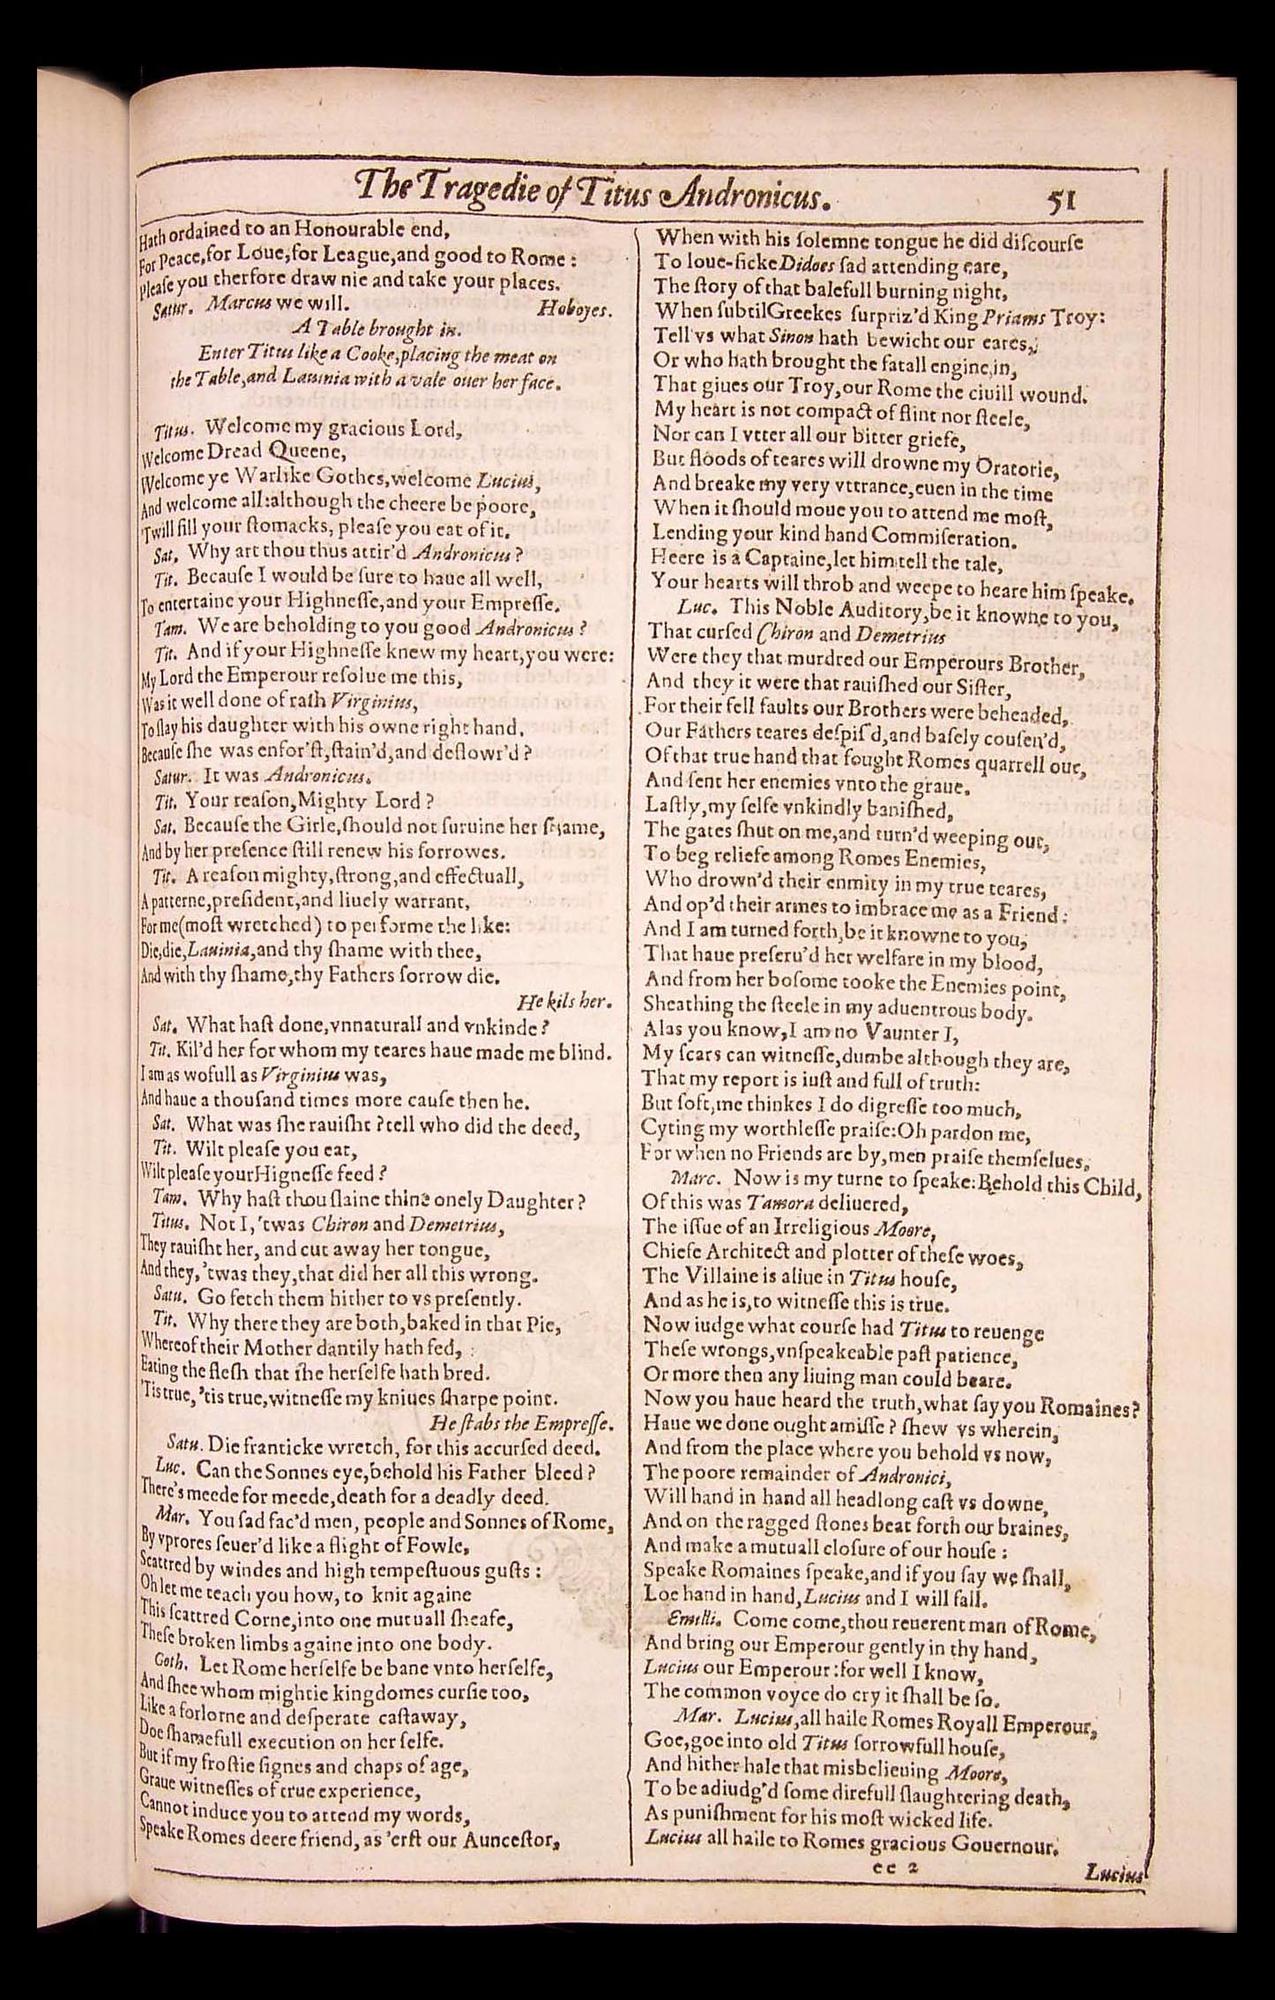 The Tragedie of Titus Andronicus. 51
Hath ordained to an Honourable end,
For Peace, for Loue, for League, and good to Rome :
Please you therfore draw nie and take your places.
Satur. Marcus we will. Hoboyes.
A Table brought in.
Enter Titus like a Cooke, placing the meat on
the Table, and Lauinia with a vale ouer her face.
Titus. Welcome my gracious Lord,
Welcome Dread Queene,
Welcome ye Warlike Gothes, welcome Lucius,
And welcome all: although the cheere be poore,
'Twill fill your stomacks, please you eat of it.
Sat, Why art thou thus attir'd Andronicus ?
Tit. Because I would be sure to haue all well,
To entertaine your Highnesse, and your Empresse.
Tam. We are beholding to you good Andronicus ?
Tit. And if your Highnesse knew my heart, you were:
My Lord the Emperour resolue me this,
Was it well done of rash Virginius,
To slay his daughter with his owne right hand.
Because she was enfor'st, stain'd, and deflowr'd ?
Satur. It was Andronicus.
Tit. Your reason, Mighty Lord ?
Sat. Because the Girle, should not suruine her shame,
And by her presence still renew his sorrowes.
Tit. A reason mighty, strong, and effectuall,
A patterne, president, and liuely warrant,
For me (most wretched) to performe the like:
Die, die, Lauinia, and thy shame with thee,
And with thy shame, thy Fathers sorrow die.
He kils her.
Sat. What hast done, vnnaturall and vnkinde ?
Tit. Kil'd her for whom my teares haue made me blind.
I am as wofull as Virginius was,
And haue a thousand times more cause then he.
Sat. What was she rauisht ? tell who did the deed,
Tit. Wilt please you eat,
Wilt please your Hignesse feed ?
Tam. Why hast thou slaine thine onely Daughter ?
Titus. Not I, 'twas Chiron and Demetrius,
They rauisht her, and cut away her tongue,
And they, 'twas they, that did her all this wrong.
Satu. Go fetch them hither to vs presently.
Tit. Why there they are both, baked in that Pie,
Whereof their Mother dantily hath fed,
Eating the flesh that she herselfe hath bred.
'Tis true, 'tis true, witnesse my kniues sharpe point.
He stabs the Empresse.
Satu. Die franticke wretch, for this accursed deed.
Luc. Can the Sonnes eye, behold his Father bleed ?
There's meede for meede, death for a deadly deed.
Mar. You sad fac'd men, people and Sonnes of Rome,
By vprores seuer'd like a flight of Fowle,
Scattred by windes and high tempestuous gusts :
Oh let me teach you how, to knit againe
This scattred Corne, into one mutuall sheafe,
These broken limbs againe into one body.
Goth. Let Rome herselfe be bane vnto herselfe,
And shee whom mightie kingdomes cursie too,
Like a forlorne and desperate castaway,
Doe shamefull execution on her selfe.
But if my frostie signes and chaps of age,
Graue witnesses of true experience,
Cannot induce you to attend my words,
Speake Romes deere friend, as 'erst our Auncestor,
When with his solemne tongue he did discourse
To loue-sicke Didoes sad attending eare,
The story of that balefull burning night,
When subtil Greekes surpriz'd King Priams Troy:
Tell vs what Sinon hath bewicht our eares,
Or who hath brought the fatall engine in,
That giues our Troy, our Rome the ciuill wound.
My heart is not compact of flint nor steele,
Nor can I vtter all our bitter griefe,
But floods of teares will drowne my Oratorie,
And breake my very vttrance, euen in the time
When it should moue you to attend me most,
Lending your kind hand Commiseration.
Heere is a Captaine, let him tell the tale,
Your hearts will throb and weepe to heare him speake.
Luc. This Noble Auditory, be it knowne to you,
That cursed Chiron and Demetrius
Were they that murdred our Emperours Brother,
And they it were that rauished our Sister,
For their fell faults our Brothers were beheaded,
Our Fathers teares despis'd, and basely cousen'd,
Of that true hand that fought Romes quarrell out,
And sent her enemies vnto the graue.
Lastly, my selfe vnkindly banished,
The gates shut on me, and turn'd weeping out,
To beg reliefe among Romes Enemies,
Who drown'd their enmity in my true teares,
And op'd their armes to imbrace me as a Friend :
And I am turned forth, be it knowne to you,
That haue preseru'd her welfare in my blood,
And from her bosome tooke the Enemies point,
Sheathing the steele in my aduentrous body.
Alas you know, I am no Vaunter I,
My scars can witnesse, dumbe although they are,
That my report is iust and full of truth:
But soft, me thinkes I do digresse too much,
Cyting my worthlesse praise: Oh pardon me,
For when no Friends are by, men praise themselues,
Marc. Now is my turne to speake: Behold this Child,
Of this was Tamora deliuered,
The issue of an Irreligious Moore,
Chiefe Architect and plotter of these woes,
The Villaine is aliue in Titus house,
And as he is, to witnesse this is true.
Now iudge what course had Titus to reuenge
These wrongs, vnspeakeable past patience,
Or more then any liuing man could beare.
Now you haue heard the truth, what say you Romaines?
Haue we done ought amisse ? shew vs wherein,
And from the place where you behold vs now,
The poore remainder of Andronici,
Will hand in hand all headlong cast vs downe,
And on the ragged stones beat forth our braines,
And make a mutuall closure of our house :
Speake Romaines speake, and if you say we shall,
Loe hand in hand, Lucius and I will fall.
Emilli. Come come, thou reuerent man of Rome,
And bring our Emperour gently in thy hand,
Lucius our Emperour : for well I know,
The common voyce do cry it shall be so.
Mar. Lucius, all haile Romes Royall Emperour,
Goe, goe into old Titus sorrowfull house,
And hither hale that misbelieuing Moore,
To be adiudg'd some direfull slaughtering death,
As punishment for his most wicked life.
Lucius all haile to Romes gracious Gouernour.
ee 2 Lucius